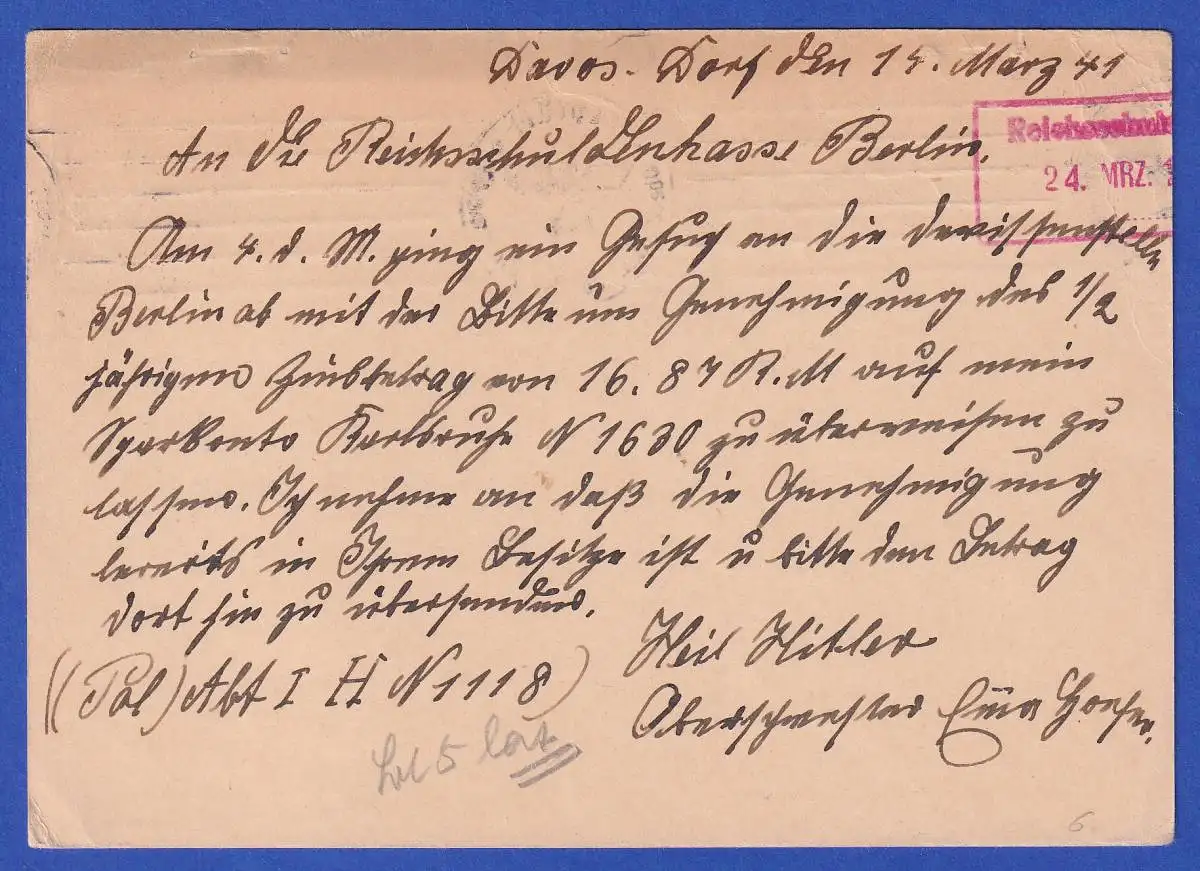 Davos. Dorf den 14. März 41
An die Reichsschuldenkasse Berlin.
Reichsschul
24. MRZ.
Am 4. d. M. ging ein Gesuch an die Devissenstelle
Berlin ab mit der Bitte um Genehmigung des 1/2
jährigen Zinsbetrag von 16.87 R.M auf mein
Sparkonto Karlsruhe N 1630 zu überweisen zu
lassen. Ich nehme an daß die Genehmigung
bereits in Ihrem Besitze ist u bitte den Betrag
dort hin zu übersenden.
Heil Hitler
((Pol) Abt I H N 1118)
Oberschwester
6